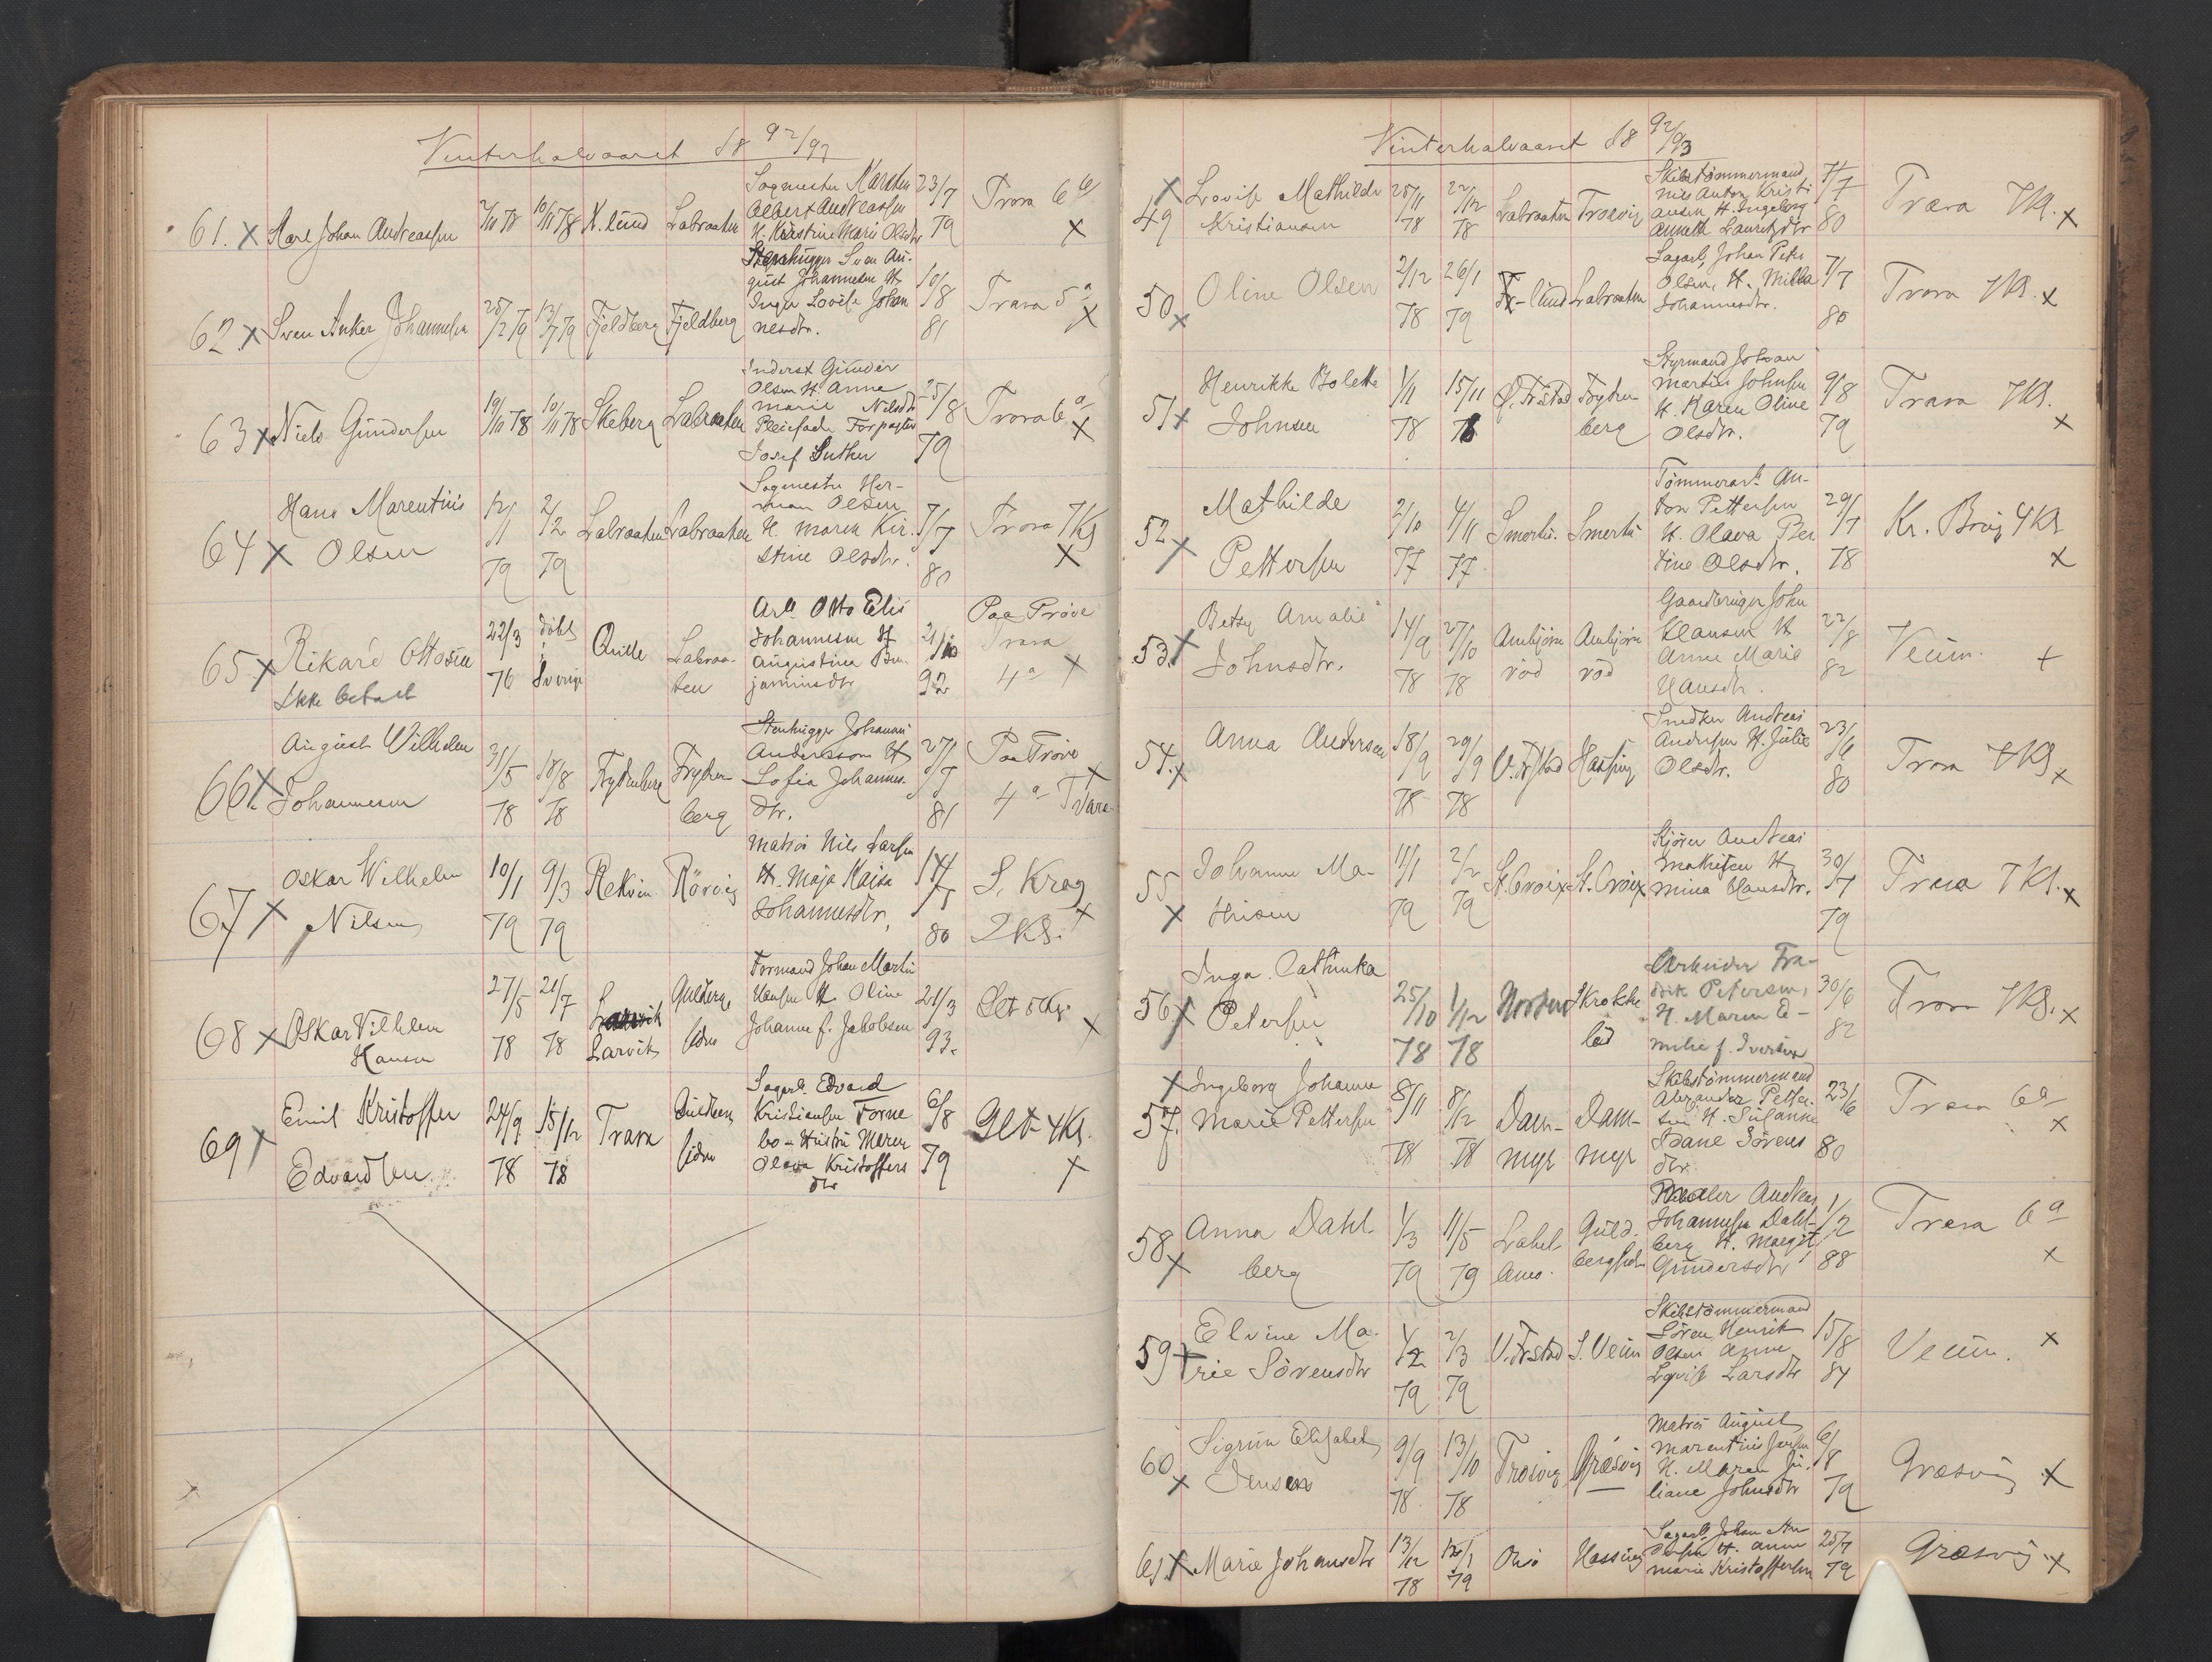 Vinterhalvaaret 18 92/93
61. x Karl Johan Andreassen 2/10 78 10/11 78 K. lund Labraaten Sagmester Marthin Albert Andreassen H. Kirstine Marie Olsdtr 23/7 79 Trara 6 b x
62. x Sven Anker Johannessen 28/2 79 13/7 79 Fjeldberg Fjeldberg Stenhugger Sven August Johannesen H. Inger Lovise Johannesdtr. 10/8 81 Trara 5 a x
63 x Niels Gundersen 19/10 78 10/11 78 Skeberg Labraaten Inderst Gunder Olsen H. Anne Marie Nilsdtr Pleiefader Forpagter Josef Luther 25/8 79 Trara 6 a x
64 x Hans Marentius Olsen 12/1 79 2/2 79 Labraaten Labraaten Sagmester Herman Olsen H. Maren Kirstine Olsdtr. 7/7 80 Trara 7 Kl x
65 x Rikard Ottosen 22/3 76 döbt i Sverige Qville Labraaten Arb. Otto Elis Johannesen H. Augustina Benjaminsdtr 21/10 92 Paa Prøve Trara 4 a x
Ikke betalt
66 x August Wilhelm Johannesen 31/5 78 18/8 78 Frydenberg Frydenberg Stenhugger Johannes Andersson H. Lofia Johannesdtr. 27/7 81 Paa Prøve 4 a Trara x
67 x Oskar Wilhelm Nilsen 10/1 79 9/3 79 Rekvin Rörvig Matros Nils Larsen H. Maja Kaisa Johannesdtr, 80 S. Krag 2 Kl. x
68 x Oskar Vilhlem Hansen 27/5 78 21/7 78 Larvik Guldbergsiden Formand Johan Martin Hansen H. Oline Johanne f. Jakobsen 21/3 93. Glb 5 Kl. x
69 x Emil Kristoffer Edvardsen 24/9 78 15/12 78 Trara Guldbergsiden Sagarb. Edvard Kristiansen Tornebo - Hustru Maren Olava Kristoffersdtr 6/8 79 Glb 4 Kl. x
Vinterhalvaaret 18 92/93
49 x Lovise Mathilde Kristiansen 25/11 78 22/12 78 Labraaten Trosvig Skibstömmermand Nils Anton Kristiansen H. Ingeborg Annette Lauritzdtr 7/7 80 Trara 7 Kl. x
50 x Oline Olsen 2/12 78 26/1 79 Kr-lund Labraaten Sagarb. Johan Peter Olsen, H. Milla Johannesdtr. 7/7 80 Trara 7 Kl. x
51 x Henrikke Bolette Johnsen 1/11 78 15/11 78 Ø. Frstad Frydenberg Styrmand Johan Martin Johnsen H. Karen Oline Olsdtr. 9/8 79 Trara 7 Kl. x
52 x Mathilde Pettersen 2/10 77 4/11 77 Smertu. Smertu Tömmerarb. Anton Pettersen H. Olava Bertine Olsdtr. 29/7 78 Kr. Brvig 4 Kl x
53. x Betsy Amalie Johnsdtr. 14/9 78 27/10 78 Ambjörnröd Ambjörnröd Gaardbruger John Klausen H. Anne Marie Hansdtr. 22/8 82 Veum. x
54. x Anna Andersen 18/9 78 29/9 78 V. Frstad Hassing Snedker Andreas Andersen H. Julie Olsdtr. 23/6 80 Trara 7 Kl. x
55 x Johanne Mathisen 11/1 79 2/2 79 St. Croix St. Croix Kjörer Andreas Mathisen H. Mina Clausdtr. 30/7 79 Trara 7 Kl. x
56 x Inga Cathinka Petersen 25/10 78 1/12 78 Krokke Arbeider Fradrik Petersen, H. Maren Emilie f. Iversen 30/6 82 Trara 7 Kl. x
57. x Ingeborg Johanne Marie Pettersen 8/11 78 8/12 78 Dammyr Dammyr Skibstömmermand Alexander Pettersen H. Susanne Isane Sörensdtr. 23/6 80 Trara 6 a x
58 x Anna Dahlberg 1/3 79 11/5 79 Guldbergsiden Maler Andreas Johannesen Dahlberg H. Margit Gundersdtr 1/2 88 Trara 6 a x
59 x Elvine Marie Sörensdtr 1/2 79 2/3 79 V. Frstad S. Veum Skibstömmermand Sören Henrik Olsen Anne Lovise Larsdtr 15/8 84 Veum. x
60 x Sigrun Elisabeth Jensen 9/9 78 13/10 78 Trosvig Græsvig Matros August Marentius Jensen H. Maren Juliane Johnsdtr 6/8 79 Græsvig x
61. x Marie Johansdtr 13/12 78 79 Onsö Hassing Sagarb. Johan Andersen H. Anne Marie Kristoffersen 25/7 79 Græsvig. x